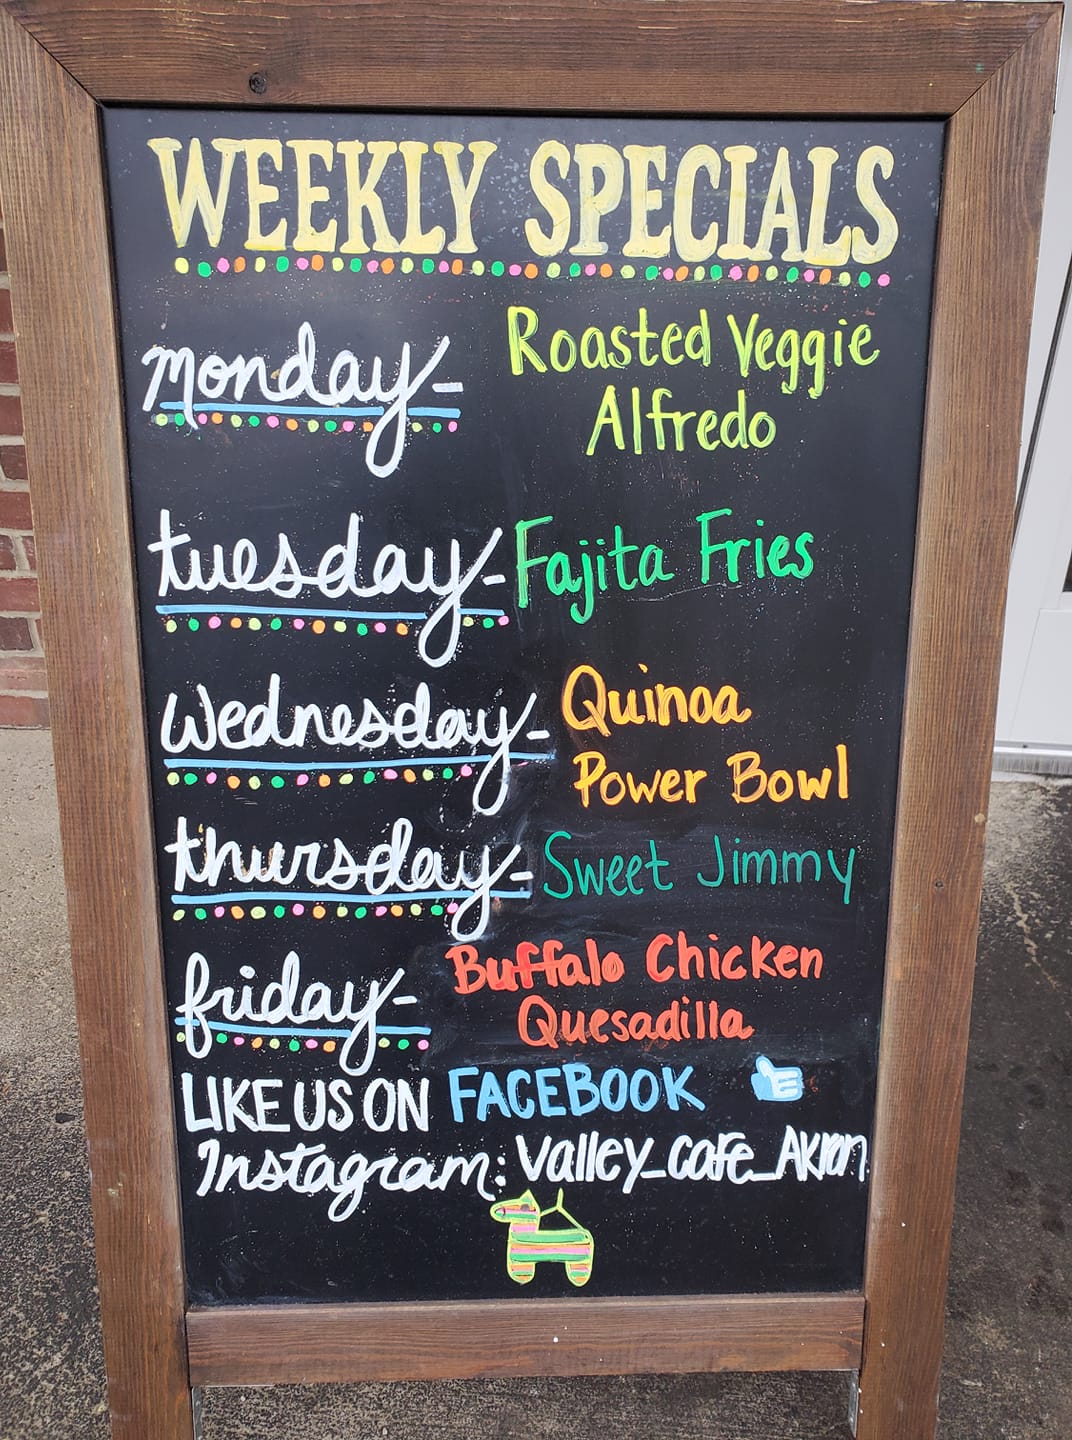 WEEKLY SPECIALS
monday- Roasted Veggie
Alfredo
tuesday- Fajita Fries
wednesday- Quinoa
Power Bowl
thursday- Sweet Jimmy
friday- Buffalo Chicken
Quesadilla
LIKE US ON FACEBOOK
Instagram: Valley_Cafe_Akron